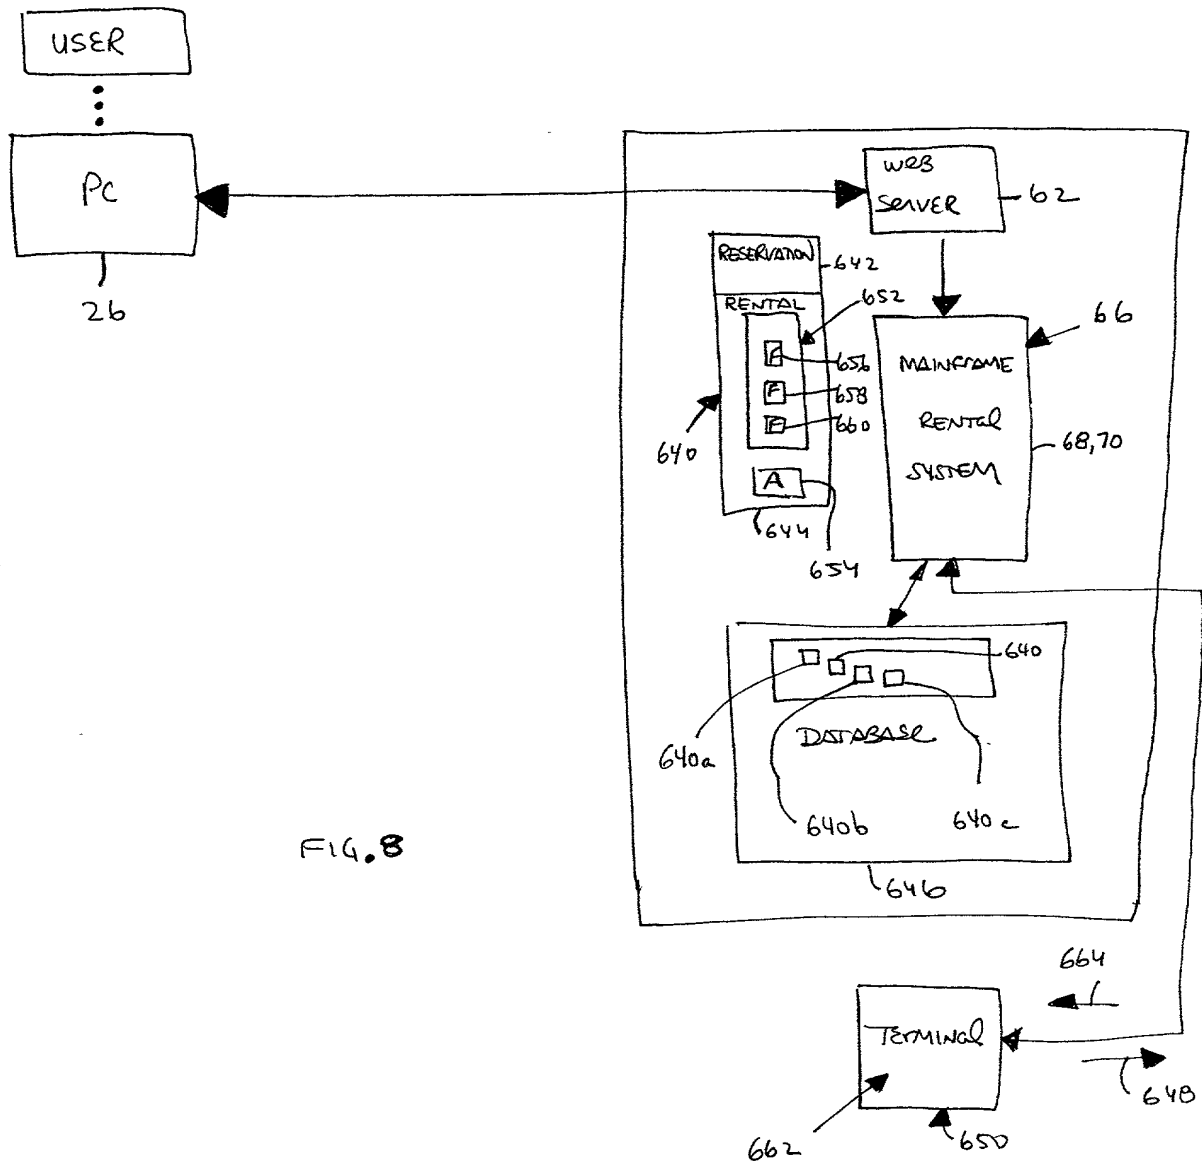 USER
PC
26
WEB
SERVER
62
RESERVATION
642
RENTAL
652
66
F
656
F
658
F
660
MAINFRAME
RENTAL
SYSTEM
68,70
640
A
644
654
640
DATABASE
640a
640b
640c
646
FIG.8
664
TERMINAL
648
662
650